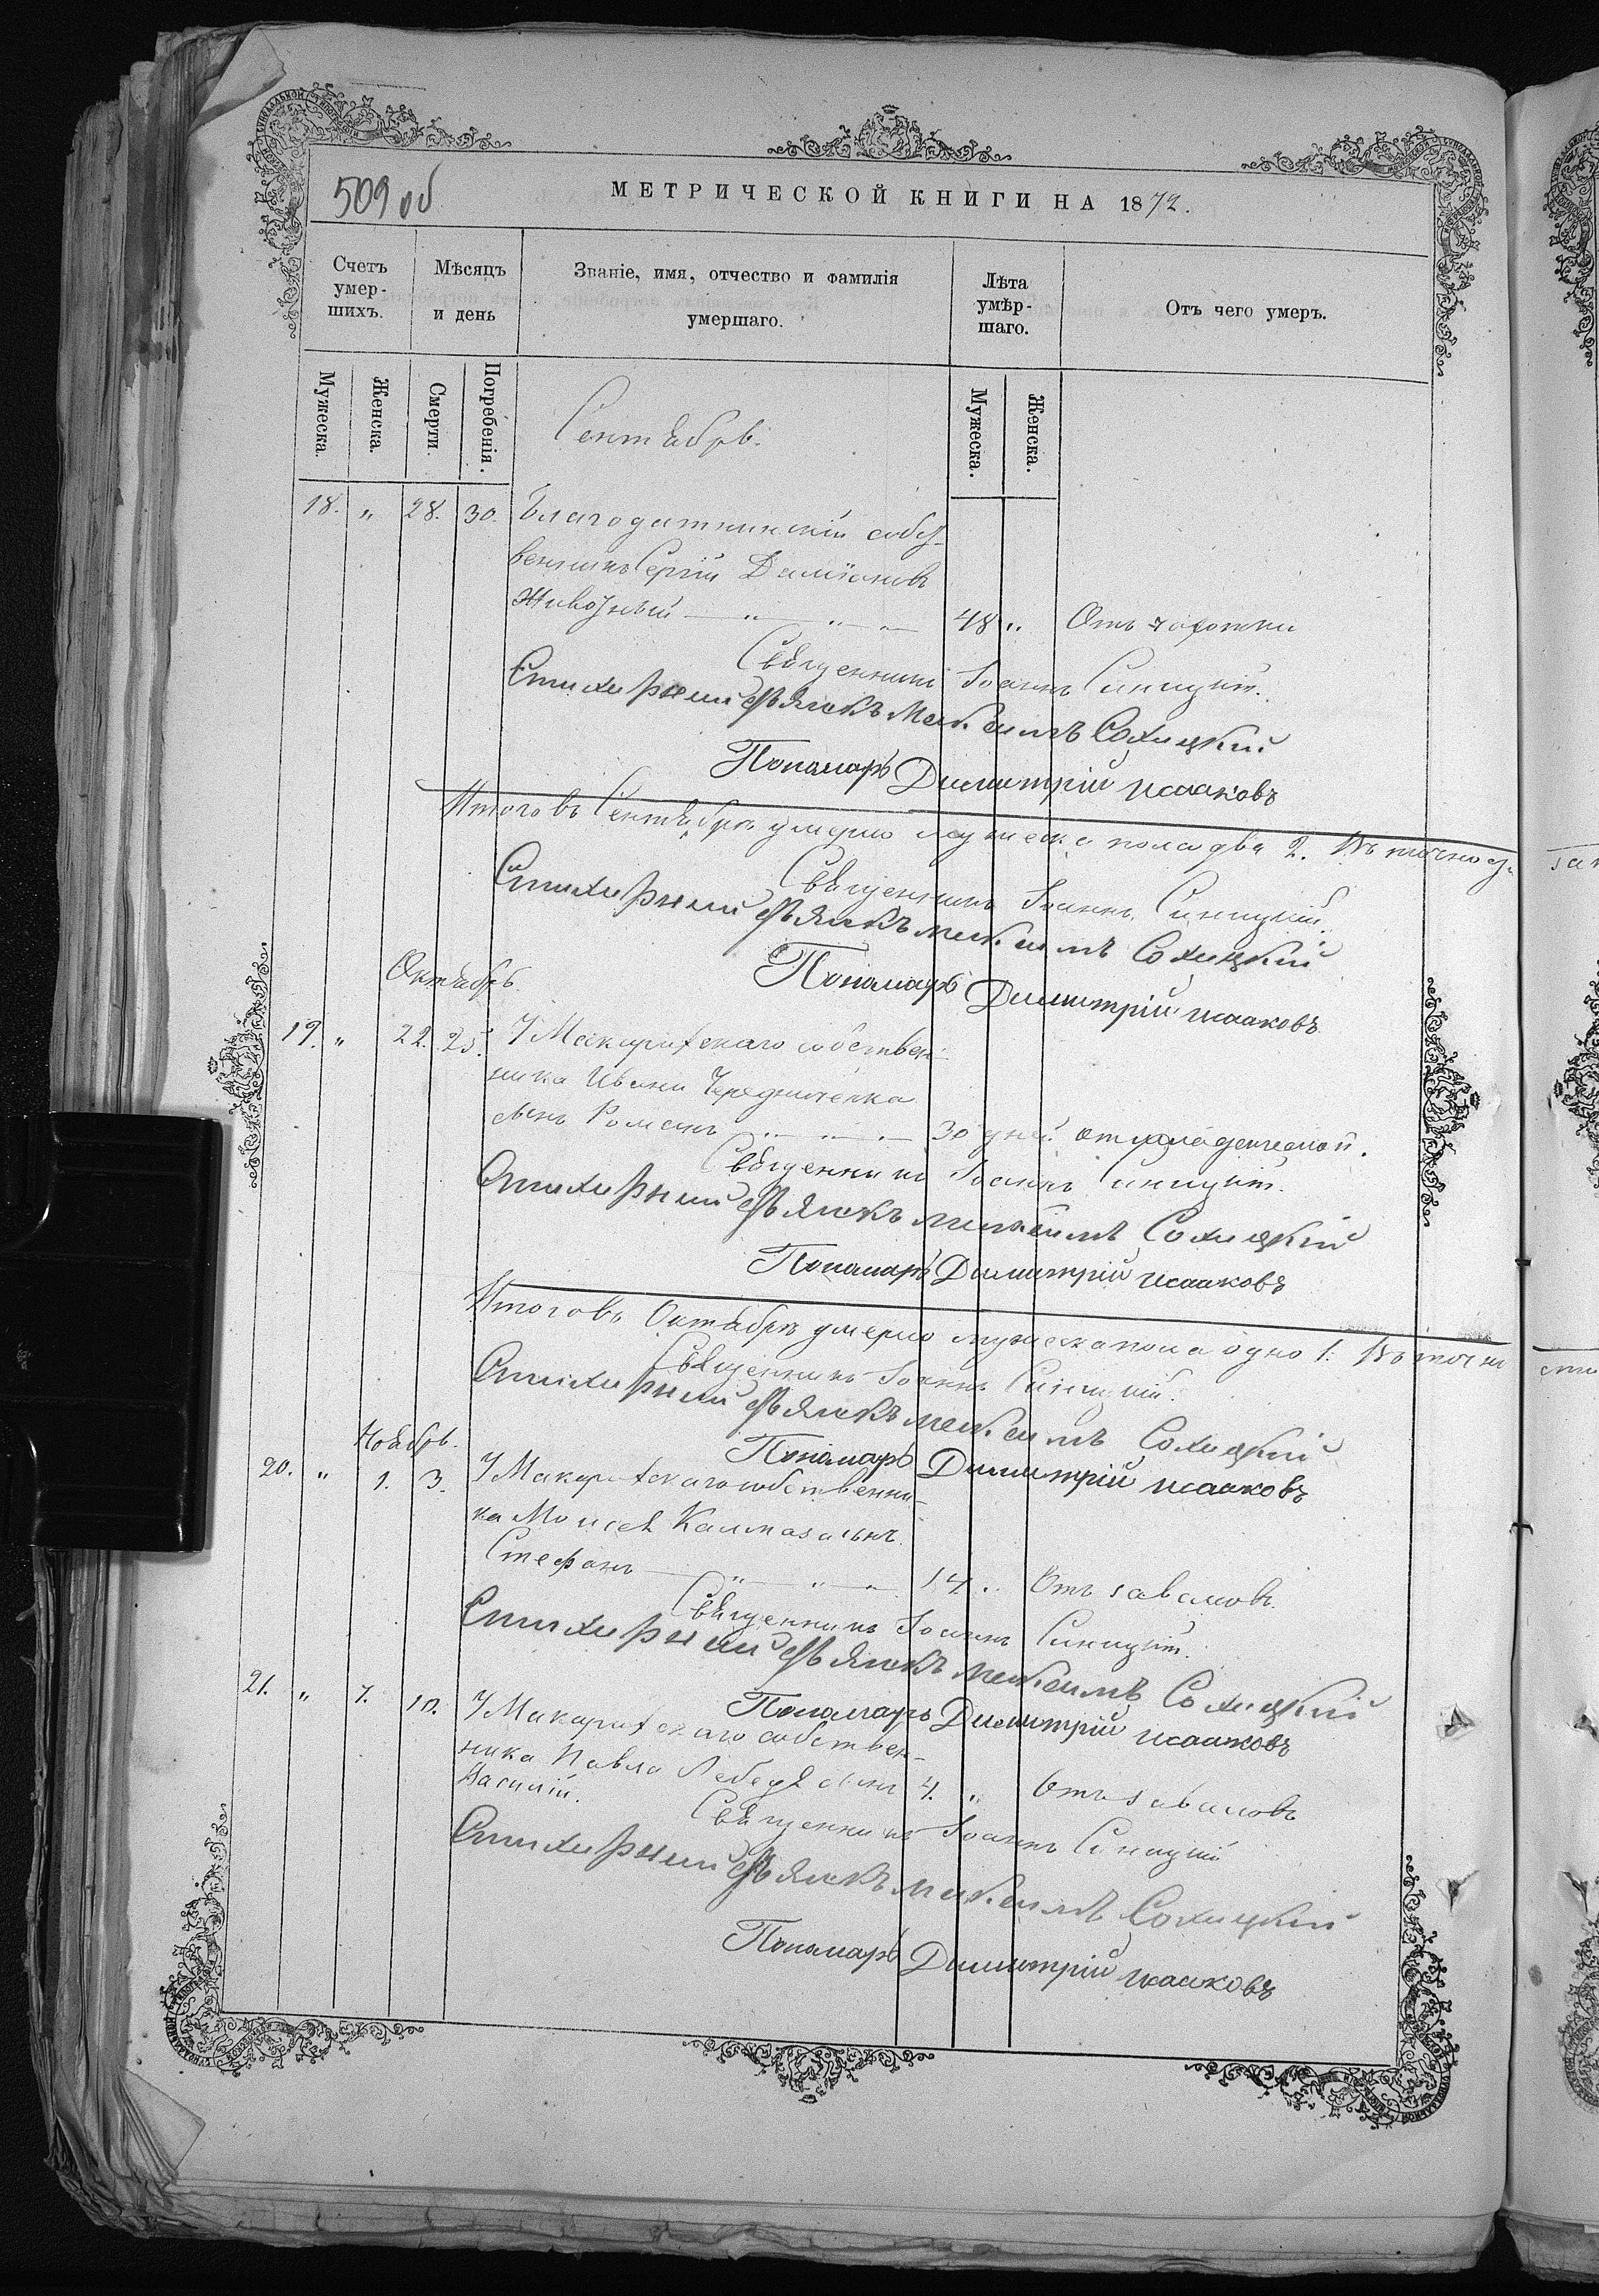 509 об
МЕТРИЧЕСКОЙ КНИГИ НА 1872.
Счетъ умер-шихъ.
Мѣсяцъ и день
Званіе, имя, отчество и фамилія умершаго.
Лѣта умѣр-шаго.
Отъ чего умеръ.
Мужеска.
Женска.
Смерти.
Погребенія.
Мужеска.
Женска.
Сентябрь.
18. „ 28. 30. Благодатнинскій собст-
венникъ Сергій Даміановъ
48 „ Отъ чахотки
Священникъ Іоаннъ Синицкій.
Стихирный Дьячекъ Максимъ Сохицкій
Пономарь Димитрій Исааковъ
Итого въ Сентябрѣ умерло мужеска пола два 2. Въ точно
Священникъ Іоаннъ Синицкій.
Стихирный Дьячекъ Максимъ Сохицкій
Пономарь Димитрій Исааковъ
Октябрь.
19. „ 22. 25. У Макаритскаго собствен-
ника Ивана Чередниченка
сынъ Романъ — „ — „ — „ — 30 дней отъ младенческой.
Священникъ Іоаннъ Синицкій.
Стихирный Дьячекъ Максимъ Сохицкій
Пономарь Димитрій Исааковъ
Итого въ Октябрѣ умерло мужеска пола одно 1. Въ точно
Священникъ Іоаннъ Синицкій.
Стихирный Дьячекъ Максимъ Сохицкій
Пономарь Димитрій Исааковъ
Ноябрь.
20. „ 1. 3. У Макаритскаго собственни-
ка Моисея сынъ
Стефанъ — „ — „ — „ 14 „ Отъ заваловъ.
Священникъ Іоаннъ Синицкій.
Стихирный Дьячекъ Максимъ Сохицкій
Пономарь Димитрій Исааковъ
21. „ 7. 10. У Макаритскаго собствен-
ника Павла Лебедя сынъ 4. „ Отъ заваловъ
Василій.
Священникъ Іоаннъ Синицкій
Стихирный Дьячекъ Максимъ Сохицкій
Пономарь Димитрій Исааковъ